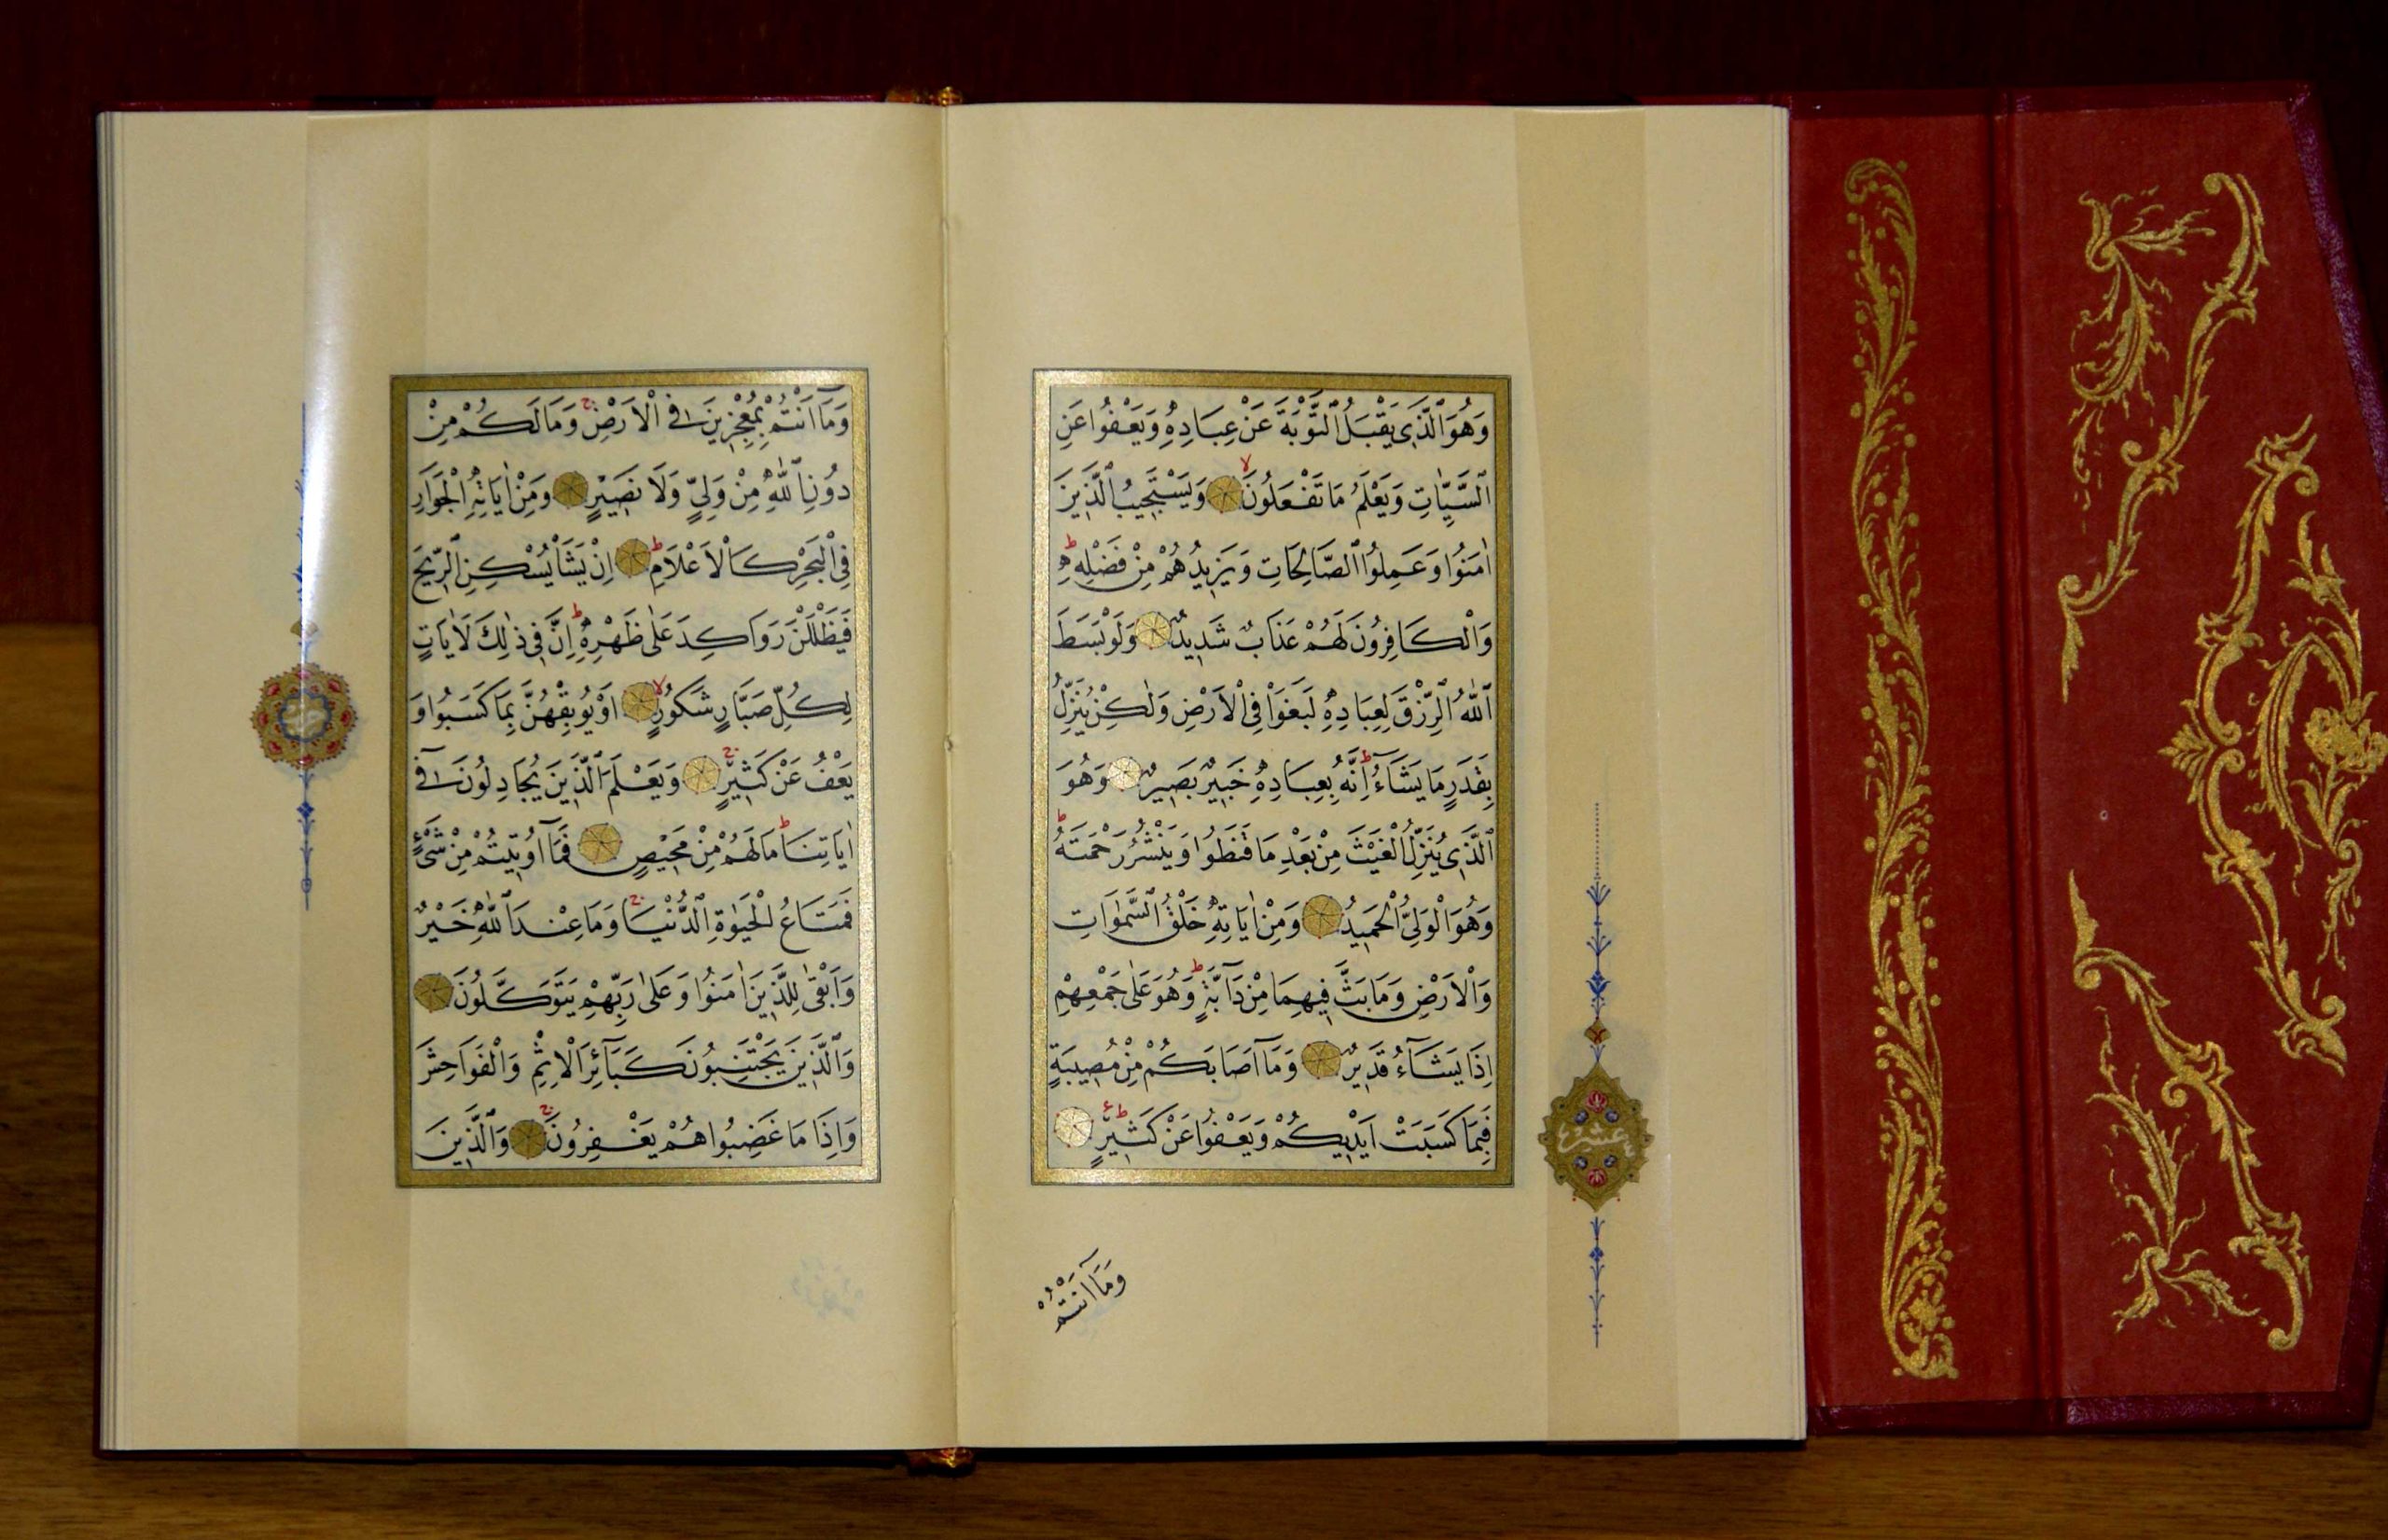 وَهُوَ الَّذ۪ي يَقْبَلُ التَّوْبَةَ عَنْ عِبَادِه۪ وَيَعْفُوا عَنِ
السَّيِّاٰتِ وَيَعْلَمُ مَا تَفْعَلُونَۙ وَيَسْتَج۪يبُ الَّذ۪ينَ
اٰمَنُوا وَعَمِلُوا الصَّالِحَاتِ وَيَز۪يدُهُمْ مِنْ فَضْلِه۪ۜ
وَالْكَافِرُونَ لَهُمْ عَذَابٌ شَد۪يدٌ وَلَوْ بَسَطَ
اللّٰهُ الرِّزْقَ لِعِبَادِه۪ لَبَغَوْا فِي الْاَرْضِ وَلٰكِنْ يُنَزِّلُ
بِقَدَرٍ مَا يَشَٓاءُۜ اِنَّهُ بِعِبَادِه۪ خَب۪يرٌ بَص۪يرٌ وَهُوَ
الَّذ۪ي يُنَزِّلُ الْغَيْثَ مِنْ بَعْدِ مَا قَنَطُوا وَيَنْشُرُ رَحْمَتَهُۜ
وَهُوَ الْوَلِيُّ الْحَم۪يدُ وَمِنْ اٰيَاتِه۪ خَلْقُ السَّمٰوَاتِ
وَالْاَرْضِ وَمَا بَثَّ ف۪يهِمَا مِنْ دَٓابَّةٍۜ وَهُوَ عَلٰى جَمْعِهِمْ
اِذَا يَشَٓاءُ قَد۪يرٌ وَمَٓا اَصَابَكُمْ مِنْ مُص۪يبَةٍ
فَبِمَا كَسَبَتْ اَيْد۪يكُمْ وَيَعْفُوا عَنْ كَث۪يرٍۜ
وَمَٓا اَنْتُمْ
عشر
وَمَٓا اَنْتُمْ بِمُعْجِز۪ينَ فِي الْاَرْضِۚ وَمَا لَكُمْ مِنْ
دُونِ اللّٰهِ مِنْ وَلِيٍّ وَلَا نَص۪يرٍ وَمِنْ اٰيَاتِهِ الْجَوَارِ
فِي الْبَحْرِ كَالْاَعْلَامِۜ اِنْ يَشَأْ يُسْكِنِ الرّ۪يحَ
فَيَظْلَلْنَ رَوَاكِدَ عَلٰى ظَهْرِه۪ۜ اِنَّ ف۪ي ذٰلِكَ لَاٰيَاتٍ
لِكُلِّ صَبَّارٍ شَكُورٍۙ اَوْ يُوبِقْهُنَّ بِمَا كَسَبُوا وَ
يَعْفُ عَنْ كَث۪يرٍۚ وَيَعْلَمَ الَّذ۪ينَ يُجَادِلُونَ ف۪ٓي
اٰيَاتِنَاۜ مَا لَهُمْ مِنْ مَح۪يصٍ فَمَٓا اُو۫ت۪يتُمْ مِنْ شَيْءٍ
فَمَتَاعُ الْحَيٰوةِ الدُّنْيَاۚ وَمَا عِنْدَ اللّٰهِ خَيْرٌ
وَاَبْقٰى لِلَّذ۪ينَ اٰمَنُوا وَعَلٰى رَبِّهِمْ يَتَوَكَّلُونَ
وَالَّذ۪ينَ يَجْتَنِبُونَ كَبَٓائِرَ الْاِثْمِ وَالْفَوَاحِشَ
وَاِذَا مَا غَضِبُوا هُمْ يَغْفِرُونَۚ وَالَّذ۪ينَ